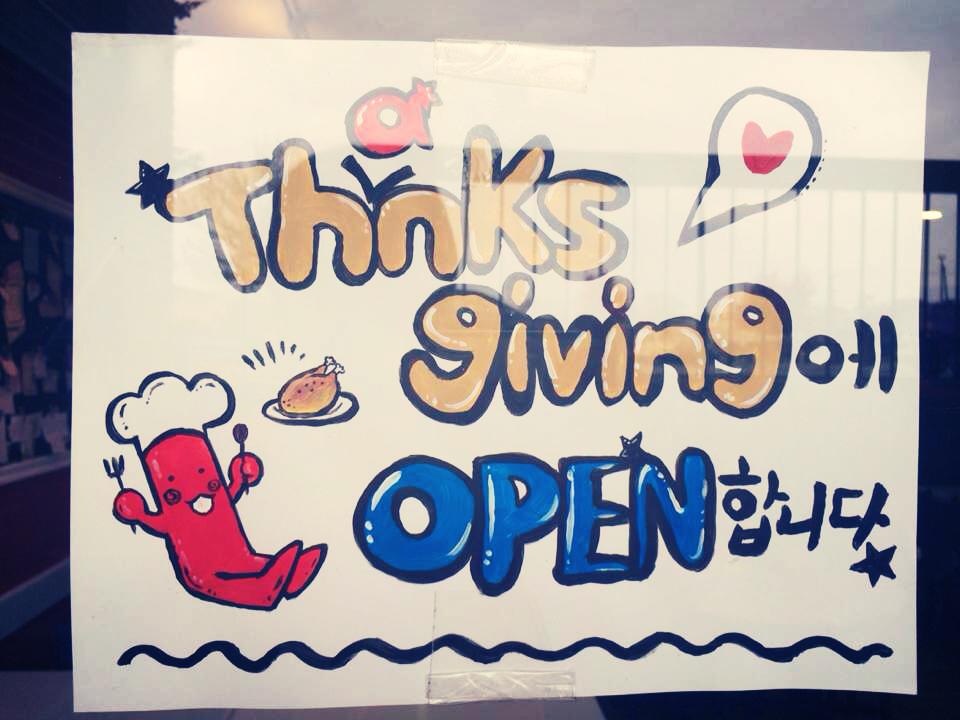 Thanks
giving에
OPEN합니다